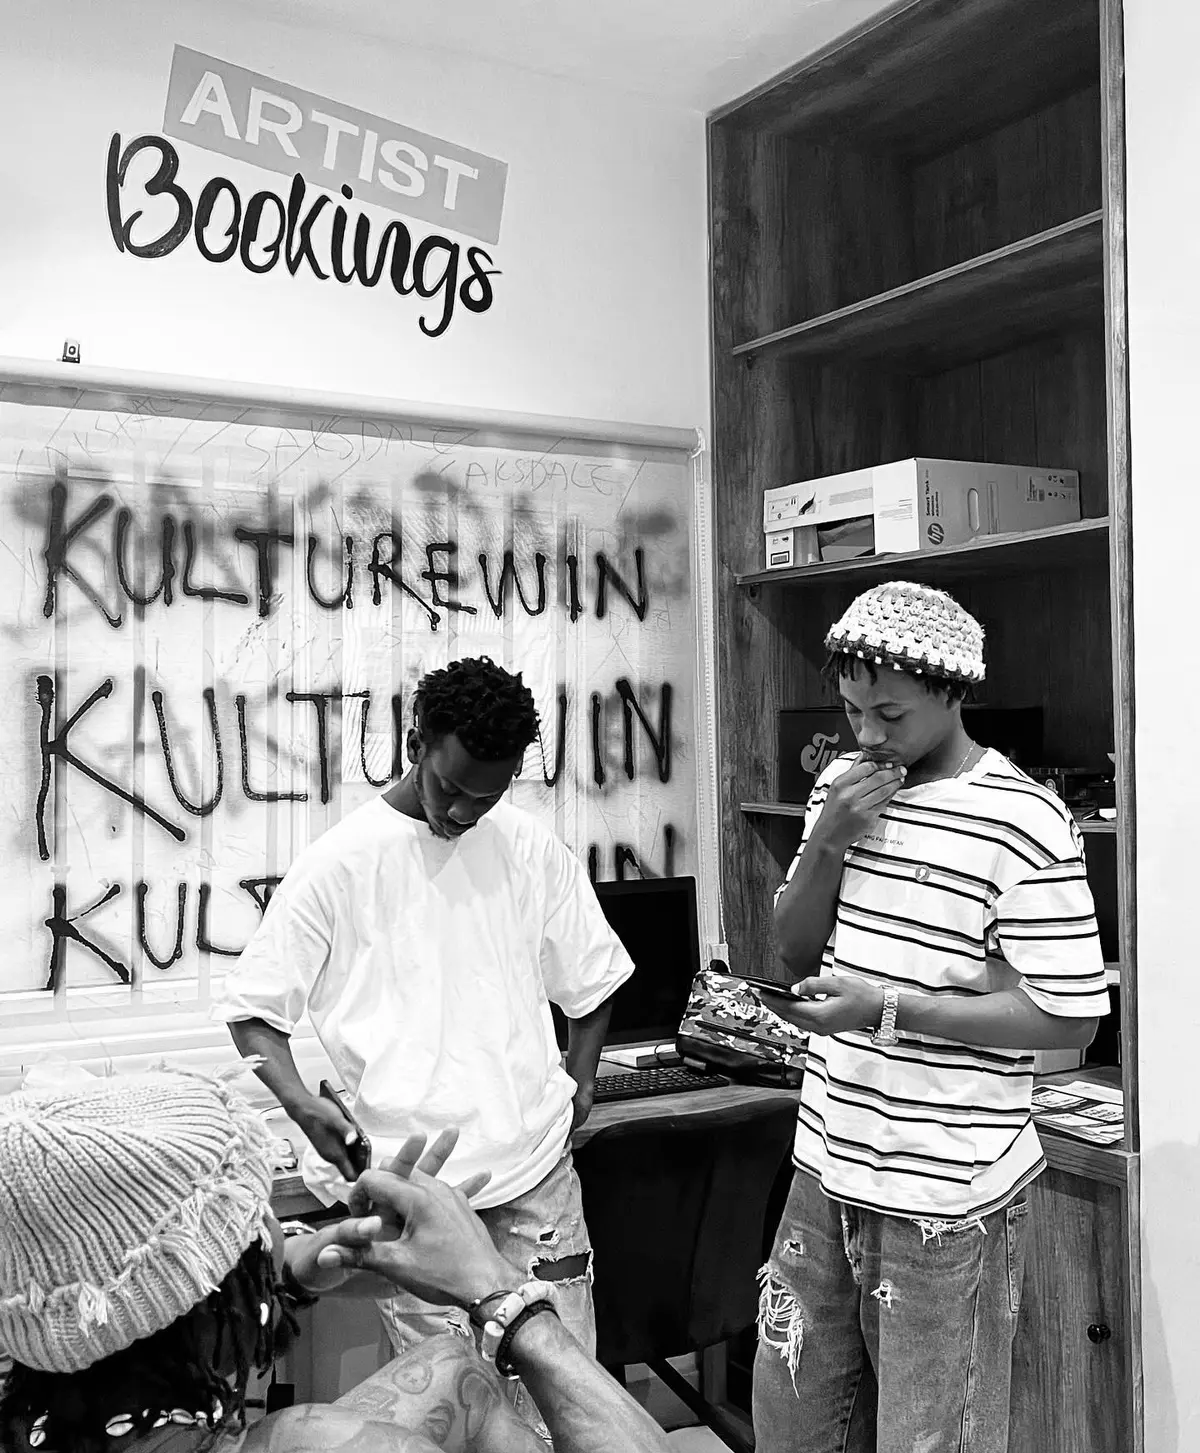 ARTIST
Bookings
SAKSDALE
AKSDALE
KULTUREWIN
KULTU WIN
KUL IN
hp
Smart Tank